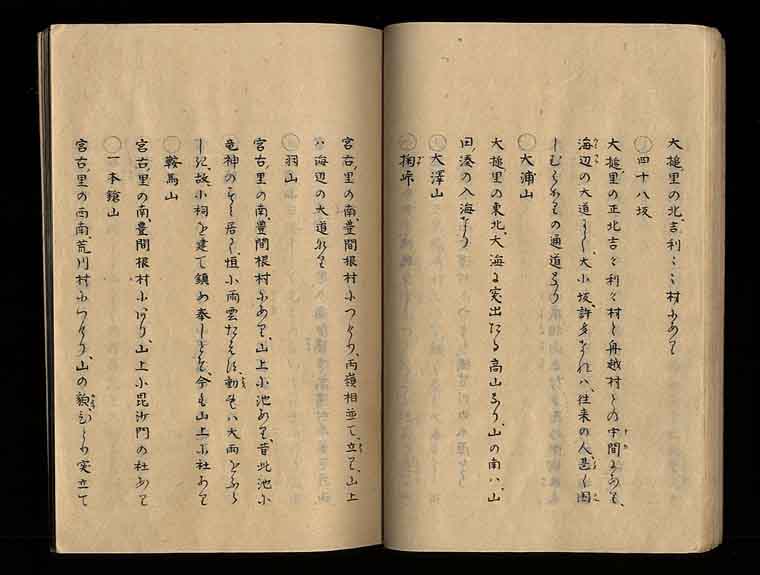 大槌里の北、吉利々々村にあり
○四十八坂
大槌里の正北吉々利々村と舟越村との中間にあり、
海辺の大道にして、大小坂、許多なれハ、往来の人甚く困
しむ の通道なり
○大浦山
大槌里の東北、大海に突出たる高山なり、山の南ハ、山
田、湊の入海なり
○大澤山
○掬峠
宮古里の南、豊間根村につゝき、両嶺相並て、立り、山上
ハ海辺の大道なり
○羽山
宮古里の南、豊間根村にあり、山上に池あり、昔此池に
竜神の 居て、恒に雨雲たえす、動もすれハ大雨をふら
しき、故、小祠を建て鎮め奉しとそ、今も山上に社あり
○鞍馬山
宮古里の南豊間根村にあり、山上に毘沙門の社あり
○一本鎗山
宮古里の西南、荒川村につゝき、山の貌、ひとり突立て